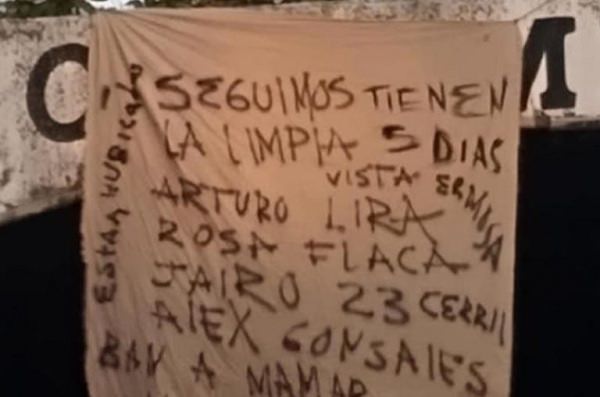 SEGUIMOS TIENEN
LA LIMPIA 5 DIAS
VISTA ERMOSA
ARTURO LIRA
ROSA FLACA
JAIRO 23 CERRIL
ALEX GONSALES
BAN A MAMAR
ESTAN HUBICADO
O
M